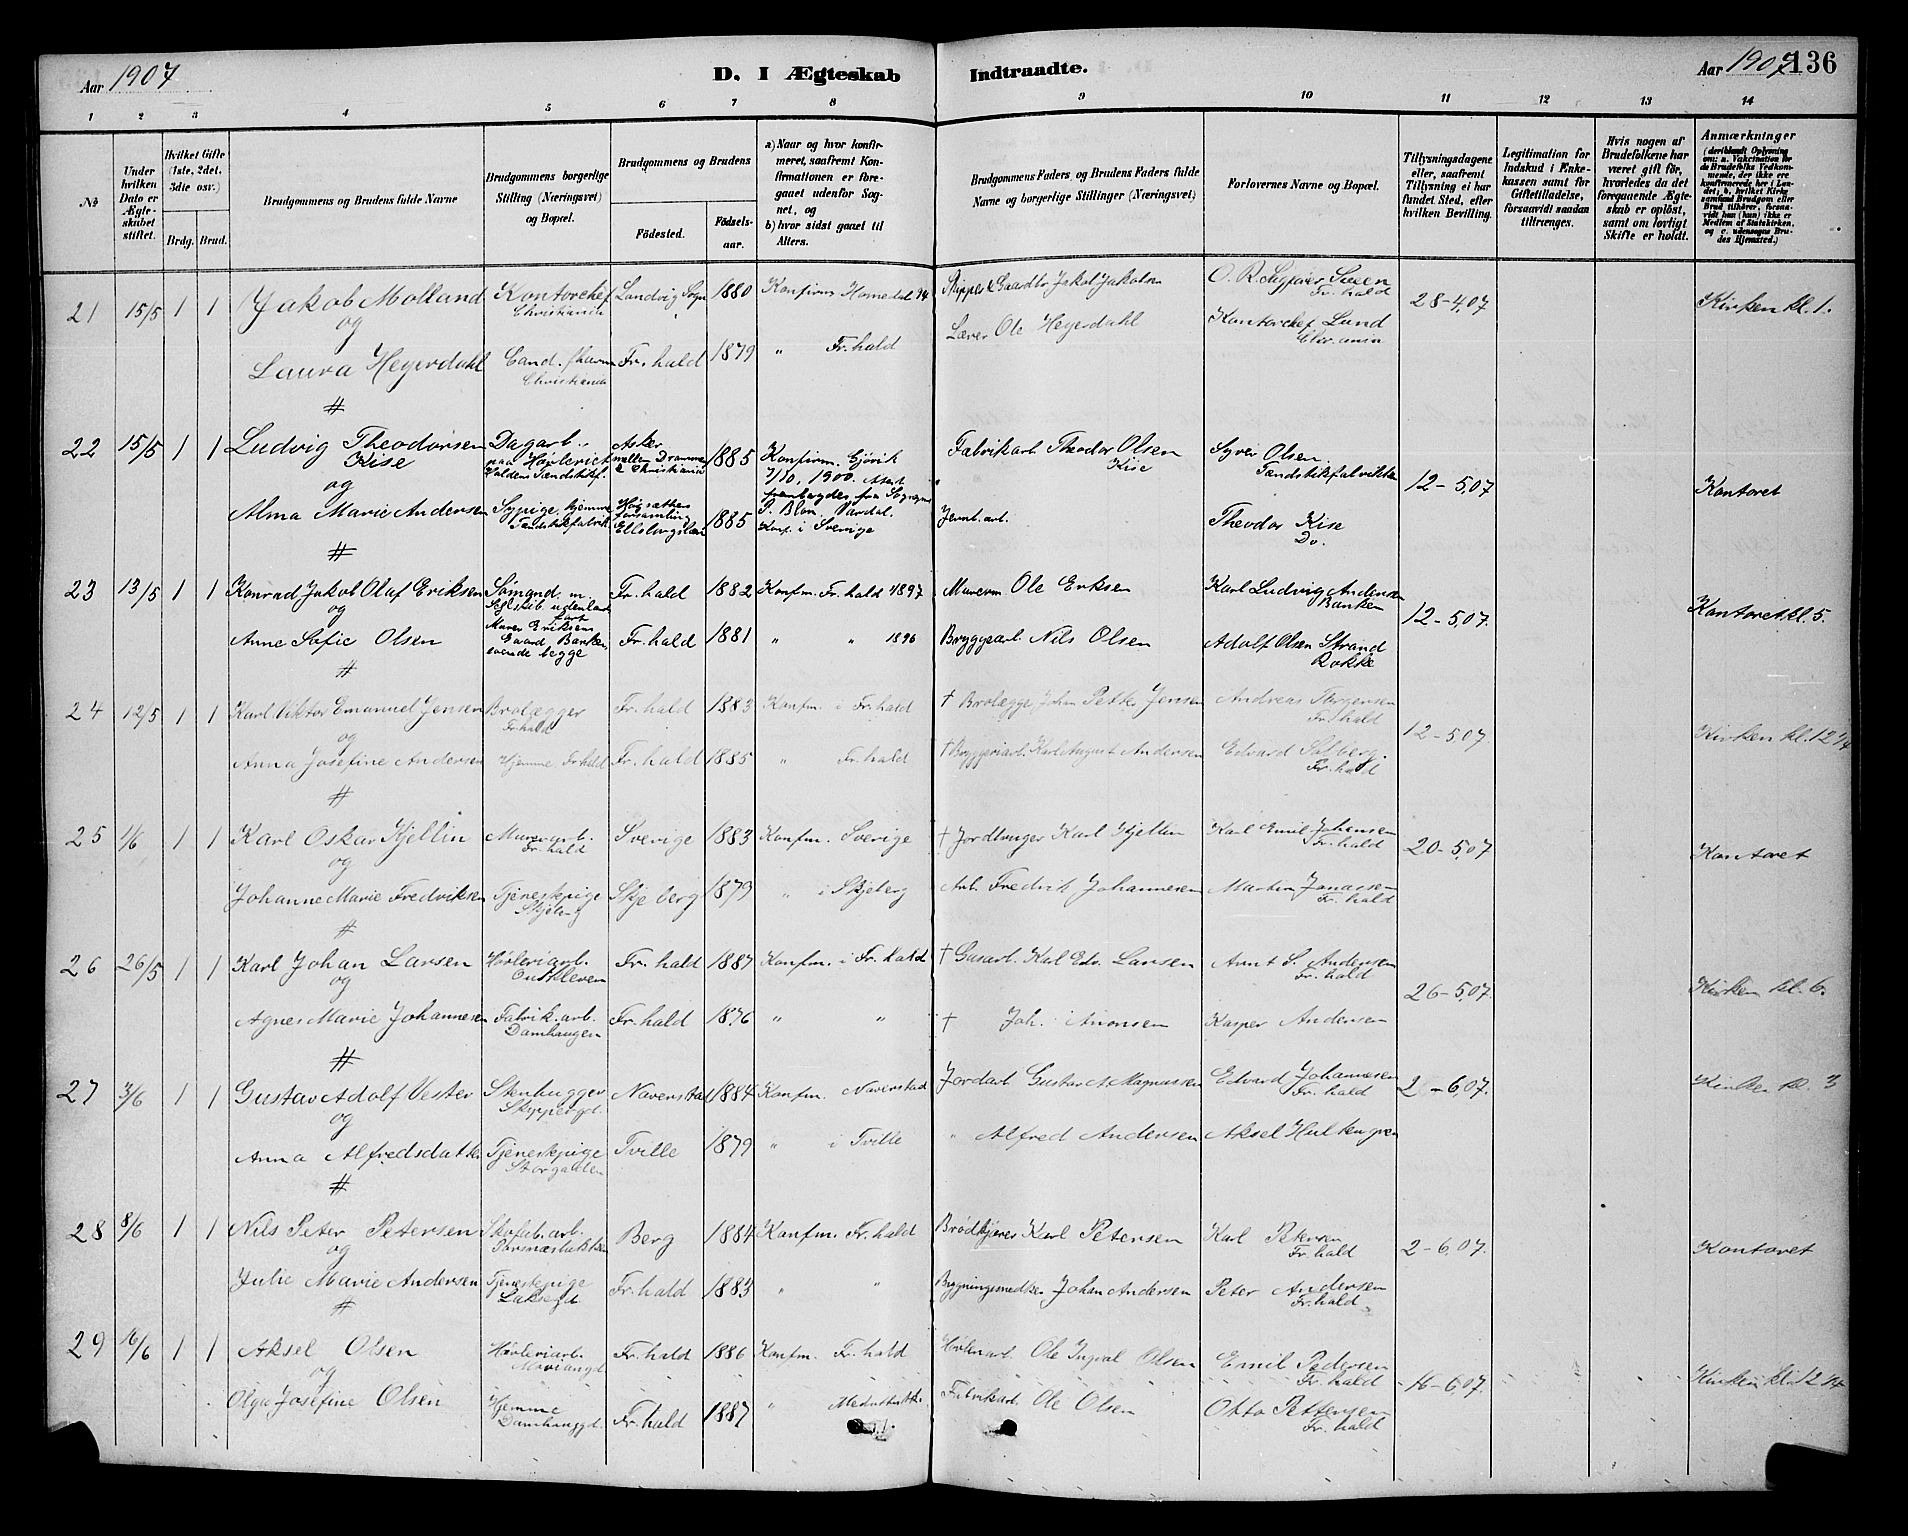 Aar 1907
D. I Ægteskab Indtraadte.
Aar 1907 136
1 2 3 4 5 6 7 8 9 10 11 12 13 14
No
Under hvilken Dato er Ægteskabet stiftet.
Hvilket Gifte (1ste, 2det, 3die osv.)
Brdg. Brud.
Brudgommens og Brudens fulde Navne
Brudgommens borgerlige Stilling (Næringsvei) og Bopæl.
Brudgommens og Brudens
Födested. Födselsaar.
a) Naar og hvor konfirmeret, saafremt Konfirmationen er foregaaet udenfor Sognet, og
b) hvor sidst gaaet til Alters.
Brudgommens Faders og Brudens Faders fulde Navne og borgerlige Stillinger (Næringsvei)
Forlovernes Navne og Bopæl.
Tillysningsdagene eller, saafremt Tillysning ei har fundet Sted, efter hvilken Bevilling.
Legitimation for Indskud i Enkekassen samt for Giftetilladelse, forsaavidt saadan tiltrænges.
Hvis nogen af Brudefolkene har været gift för, hvorledes da det foregaaende Ægteskab er oplöst, samt om lovligt Skifte er holdt.
Anmærkninger
(deriblandt Oplysning om: a. Vakcination for de Brudefolks Vedkommende, der ikke ere konfirmerede her i Landet; b. hvilket Kirkesamfund Brudgom eller Brud tilhörer, forsaavidt han (hun) ikke er Medlem af Statskirken, og c. udensogns Brudes Hjemsted.)
21 15/5 1 1 Jakob Molland Kontorchef Christiania Landvig Sogn 1880 Konfirm. Homedal 94 Skipper & Gaardbr. Jakob Jakobsen O. R. Sagfører Sveen Fr.hald 28-4,07 Kirken kl. 1.
og
Laura Heyerdahl Cand. pharm Christiania Fr.hald 1879 " Fr.hald Lærer Ole Heyerdahl Kontorchef Lund Chr.ania
#
22 15/5 1 1 Ludvig Theodorsen Kise Dagarb. paa Høvleriet Haldens Tændstikf. Asker mellem Drammen & Christiania 1885 Konfirm. Gjøvik 7/10, 1900. Attest frembragdes fra Sogneprs P. Blom Vardal. Fabrikarb Theodor Olsen Kise Syver Olsen Tændstikfabrikken 12-5,07 Kontoret
og
Alma Marie Andersen Sypige, hjemme Tændstikfabrik Högsäters forsamling Elfsborgs län 1885 Konf. i Sverige Jernb. arb. Theodor Kise Do.
#
23 13/5 1 1 Konrad Jakob Olaf Eriksen Sømand m. Seglskib udenlands fart Murer Eriksens Gaard Banken Fr.hald 1882 Konfm. Fr.hald 1897 Murerm Ole Eriksen Karl Ludvig Andersen Banken 12-5,07. Kontoret kl. 5.
og
Anne Sofie Olsen boende begge Fr.hald 1881 " " 1896 Bryggearb Nils Olsen Adolf Olsen Strand Rokke
#
24 12/5 1 1 Karl Viktor Emanuel Jensen Brolægger Fr.hald Fr.hald 1883 Konfm. i Fr.hald † Brolægge, Johan Petter Jensen Andreas Torgersen Fr.hald 12-5,07 Kirken kl. 12 1/4
og
Anna Josefine Andersen Hjemme Fr.hald Fr.hald 1885 " Fr.hald † Bryggeriarb. Karl August Andersen Edvard Solberg Fr.hald
#
25 1/6 1 1 Karl Oskar Kjellin Murerarb. Fr.hald Sverige 1883 Konfm. Sverige † Jordbruger Karl Kjellin Karl Emil Johansen Fr.hald 20-5,07 Kontoret
og
Johanne Marie Fredriksen Tjenestepige Skjeberg Skjeberg 1879 " i Skjeberg Arb. Fredrik Johannesen Martin Jonassen Fr.hald
#
26 26/5 1 1 Karl Johan Larsen Høvleriarb. Fr.hald 1887 Konfm. i Fr.hald † Gasarb. Karl Edv. Larsen Arnt S. Andersen Fr.hald 26-5,07. Kirken kl. 6.
og
Agnes Marie Johannesen Fabrik.arb. Damhaugen Fr.hald 1876 " " † Joh. Kasper Andersen
#
27 3/6 1 1 Gustav Adolf Vester Stenhugger Skippergd. Naverstad 1884 Konfm. Naverstad Jordarb Gustav A. Magnussen Edvard Johannesen Fr.hald 2-6,07. Kirken kl. 3
og
Anna Alfredsdatter Tjenestepige Storgaden Tville 1879 " i Tville " Alfred Andersen Aksel Hultengren
#
28 8/6 1 1 Nils Peter Petersen Skofab.arb. Berg 1884 Konfm. Fr.hald Brødkjører Karl Petersen Karl Petersen Fr.hald 2-6,07. Kontoret
og
Julie Marie Andersen Tjenestepige Laksegd. Fr.hald 1883 " " Bygningsmedker Johan Andersen Peter Andersen Fr.hald
#
29 16/6 1 1 Aksel Olsen Høvleriarb. Fr.hald 1886 Konfm. Fr.hald Høvleriarb Ole Ingval Olsen Emil Pedersen Fr.hald 16-6,07. Kirken kl. 12 1/4
og
Olga Josefine Olsen Hjemme Damhauggd. Fr.hald 1887 " Fabrikarb Ole Olsen Otto Pettersen Fr.hald